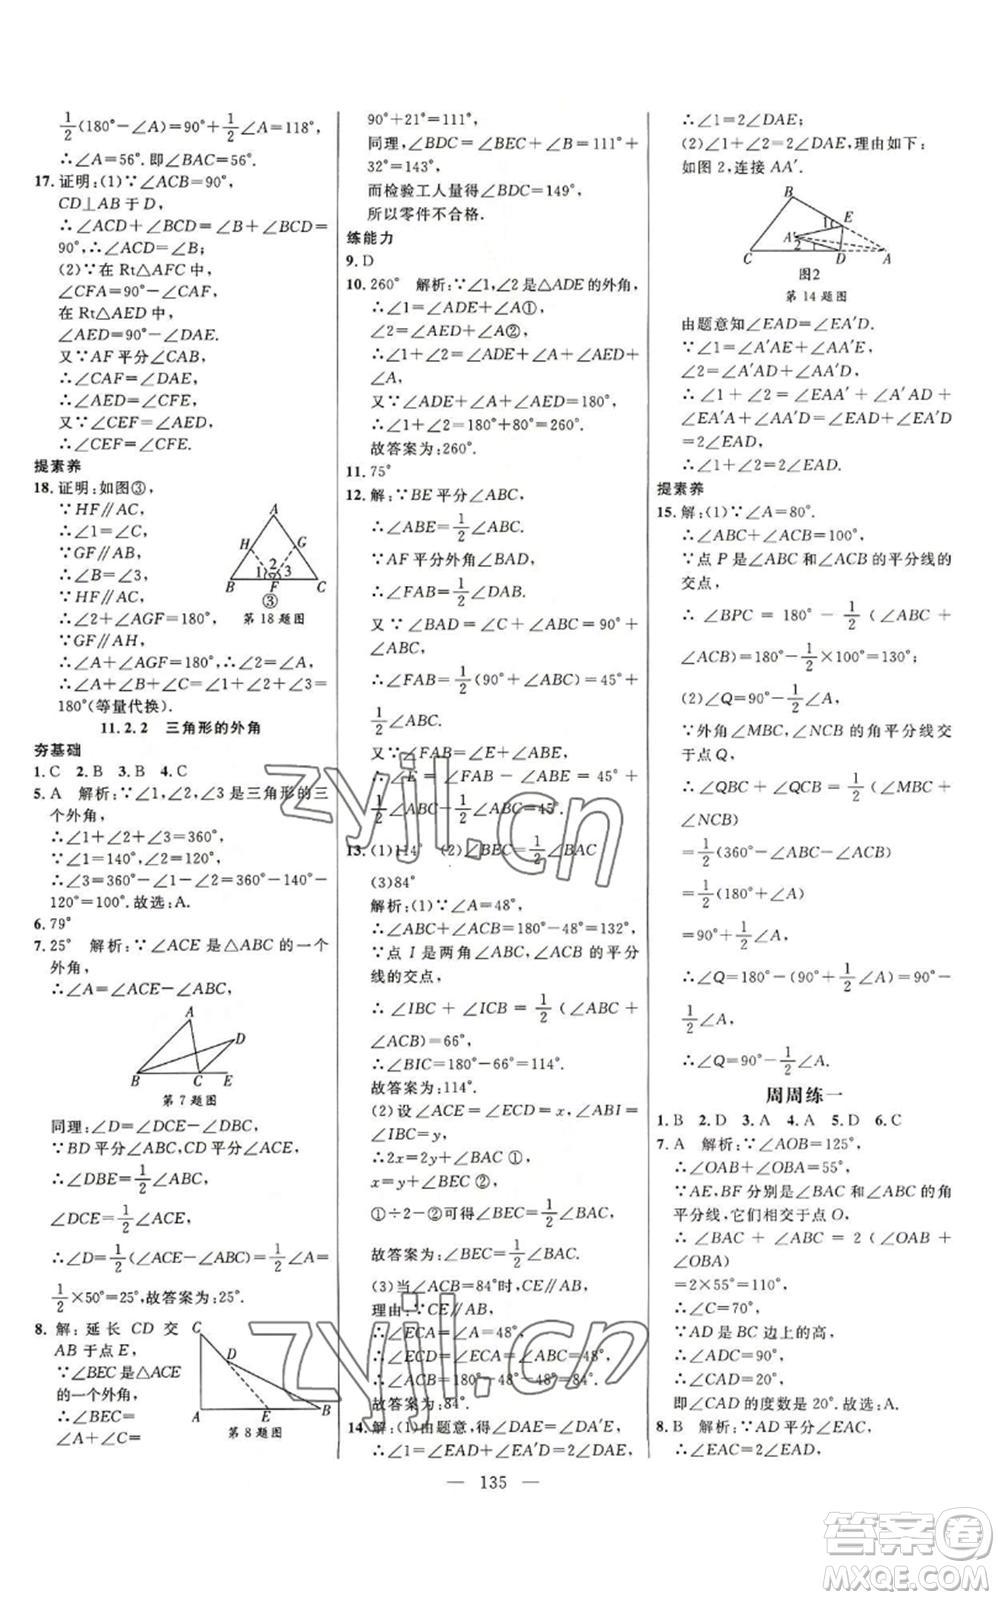 1/2(180°-∠A)=90°+1/2∠A=118°,
∴∠A=56°.即∠BAC=56°.
17.证明:(1)∵∠ACB=90°,
CD⊥AB于D,
∴∠ACD+∠BCD=∠B+∠BCD=
90°,∴∠ACD=∠B;
(2)∵在Rt△AFC中,
∠CFA=90°-∠CAF,
在Rt△AED中,
∠AED=90°-∠DAE.
又∵AF平分∠CAB,
∴∠CAF=∠DAE,
∴∠AED=∠CFE,
又∵∠CEF=∠AED,
∴∠CEF=∠CFE.
提素养
18.证明:如图③,
∵HF∥AC,
∴∠1=∠C,
∵GF∥AB,
∴∠B=∠3,
∵HF∥AC,
∴∠2+∠AGF=180°,
∵GF∥AH,
∴∠A+∠AGF=180°,∴∠2=∠A,
∴∠A+∠B+∠C=∠1+∠2+∠3=
180°(等量代换).
A
H G
1 2 3
B F C
③
第18题图
11.2.2 三角形的外角
夯基础
1.C 2.B 3.B 4.C
5.A 解析:∵∠1,∠2,∠3是三角形的三
个外角,
∴∠1+∠2+∠3=360°,
∵∠1=140°,∠2=120°,
∴∠3=360°-∠1-∠2=360°-140°-
120°=100°.故选:A.
6.79°
7.25° 解析:∵∠ACE是△ABC的一个
外角,
∴∠A=∠ACE-∠ABC,
A
D
B C E
第7题图
同理:∠D=∠DCE-∠DBC,
∵BD平分∠ABC,CD平分∠ACE,
∴∠DBE=1/2∠ABC,
∠DCE=1/2∠ACE,
∴∠D=1/2(∠ACE-∠ABC)=1/2∠A=
1/2×50°=25°,故答案为:25°.
8.解:延长CD交
AB于点E,
∵∠BEC是∠ACE
的一个外角,
∴∠BEC=
∠A+∠C=
C
D
A E B
第8题图
90°+21°=111°,
同理,∠BDC=∠BEC+∠B=111°+
32°=143°,
而检验工人量得∠BDC=149°,
所以零件不合格.
练能力
9.D
10.260° 解析:∵∠1,∠2是△ADE的外角,
∴∠1=∠ADE+∠A①,
∠2=∠AED+∠A②,
∴∠1+∠2=∠ADE+∠A+∠AED+
∠A,
又∵∠ADE+∠A+∠AED=180°,
∴∠1+∠2=180°+80°=260°.
故答案为:260°.
11.75°
12.解:∵BE平分∠ABC,
∴∠ABE=1/2∠ABC.
∵AF平分外角∠BAD,
∴∠FAB=1/2∠DAB.
又∵∠BAD=∠C+∠ABC=90°+
∠ABC,
∴∠FAB=1/2(90°+∠ABC)=45°+
1/2∠ABC.
又∵∠FAB=∠E+∠ABE,
∴∠E=∠FAB-∠ABE=45°+
1/2∠ABC-1/2∠ABC=45°.
13.(1)114° (2)∠BEC=1/2∠BAC
(3)84°
解析:(1)∵∠A=48°,
∴∠ABC+∠ACB=180°-48°=132°,
∵点I是两角∠ABC、∠ACB的平分
线的交点,
∴∠IBC+∠ICB=1/2(∠ABC+
∠ACB)=66°,
∴∠BIC=180°-66°=114°.
故答案为:114°.
(2)设∠ACE=∠ECD=x,∠ABE=
∠IBC=y,
∴2x=2y+∠BAC①,
x=y+∠BEC②,
①÷2-②可得∠BEC=1/2∠BAC,
故答案为:∠BEC=1/2∠BAC.
(3)当∠ACB=84°时,CE∥AB,
理由:∵CE∥AB,
∴∠ECA=∠A=48°,
∴∠ECD=∠ECA=∠ABC=48°,
∴∠ACB=180°-48°-48°=84°.
故答案为:84°.
14.解:(1)由题意,得∠DAE=∠DA′E,
∴∠1=∠EAD+∠EA′D=2∠EAD,
∴∠1=2∠DAE;
(2)∠1+∠2=2∠DAE,理由如下:
如图2,连接AA′.
B
1 E
A′
2
C D A
图2
第14题图
由题意知∠EAD=∠EA′D.
∵∠1=∠A′AE+∠AA′E,
∠2=∠A′AD+∠AA′D,
∴∠1+∠2=∠EAA′+∠A′AD+
∠EA′A+∠AA′D=∠EAD+∠EA′D
=2∠EAD,
∴∠1+∠2=2∠EAD.
提素养
15.解:(1)∵∠A=80°.
∴∠ABC+∠ACB=100°,
∵点P是∠ABC和∠ACB的平分线的
交点,
∴∠BPC=180°-1/2(∠ABC+
∠ACB)=180°-1/2×100°=130°;
(2)∠Q=90°-1/2∠A.理由:
∵外角∠MBC,∠NCB的角平分线交
于点Q,
∴∠QBC+∠QCB=1/2(∠MBC+
∠NCB)
=1/2(360°-∠ABC-∠ACB)
=1/2(180°+∠A)
=90°+1/2∠A,
∴∠Q=180°-(90°+1/2∠A)=90°-
1/2∠A,
∴∠Q=90°-1/2∠A.
周周练一
1.B 2.D 3.A 4.A 5.D 6.C
7.A 解析:∵∠AOB=125°,
∴∠OAB+∠OBA=55°,
∵AE,BF分别是∠BAC和∠ABC的角
平分线,它们相交于点O,
∴∠BAC+∠ABC=2(∠OAB+
∠OBA)
=2×55°=110°,
∴∠C=70°,
∵AD是BC边上的高,
∴∠ADC=90°,
∴∠CAD=20°,
即∠CAD的度数是20°.故选:A.
8.B 解析:∵AD平分∠EAC,
∴∠EAC=2∠EAD,
— 135 —
zyjl.cn
zyjl.cn
答案圈
MXQE.COM